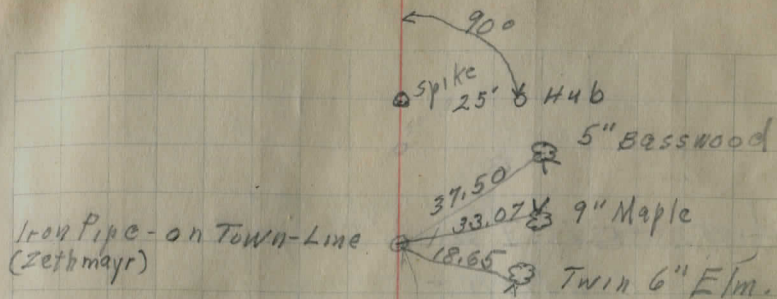 90°
spike 25' Hub
5" Basswood
37.50
33.07 9" Maple
Iron Pipe - on Town-Line
(Zethmayr)
18.65
Twin 6" Elm.